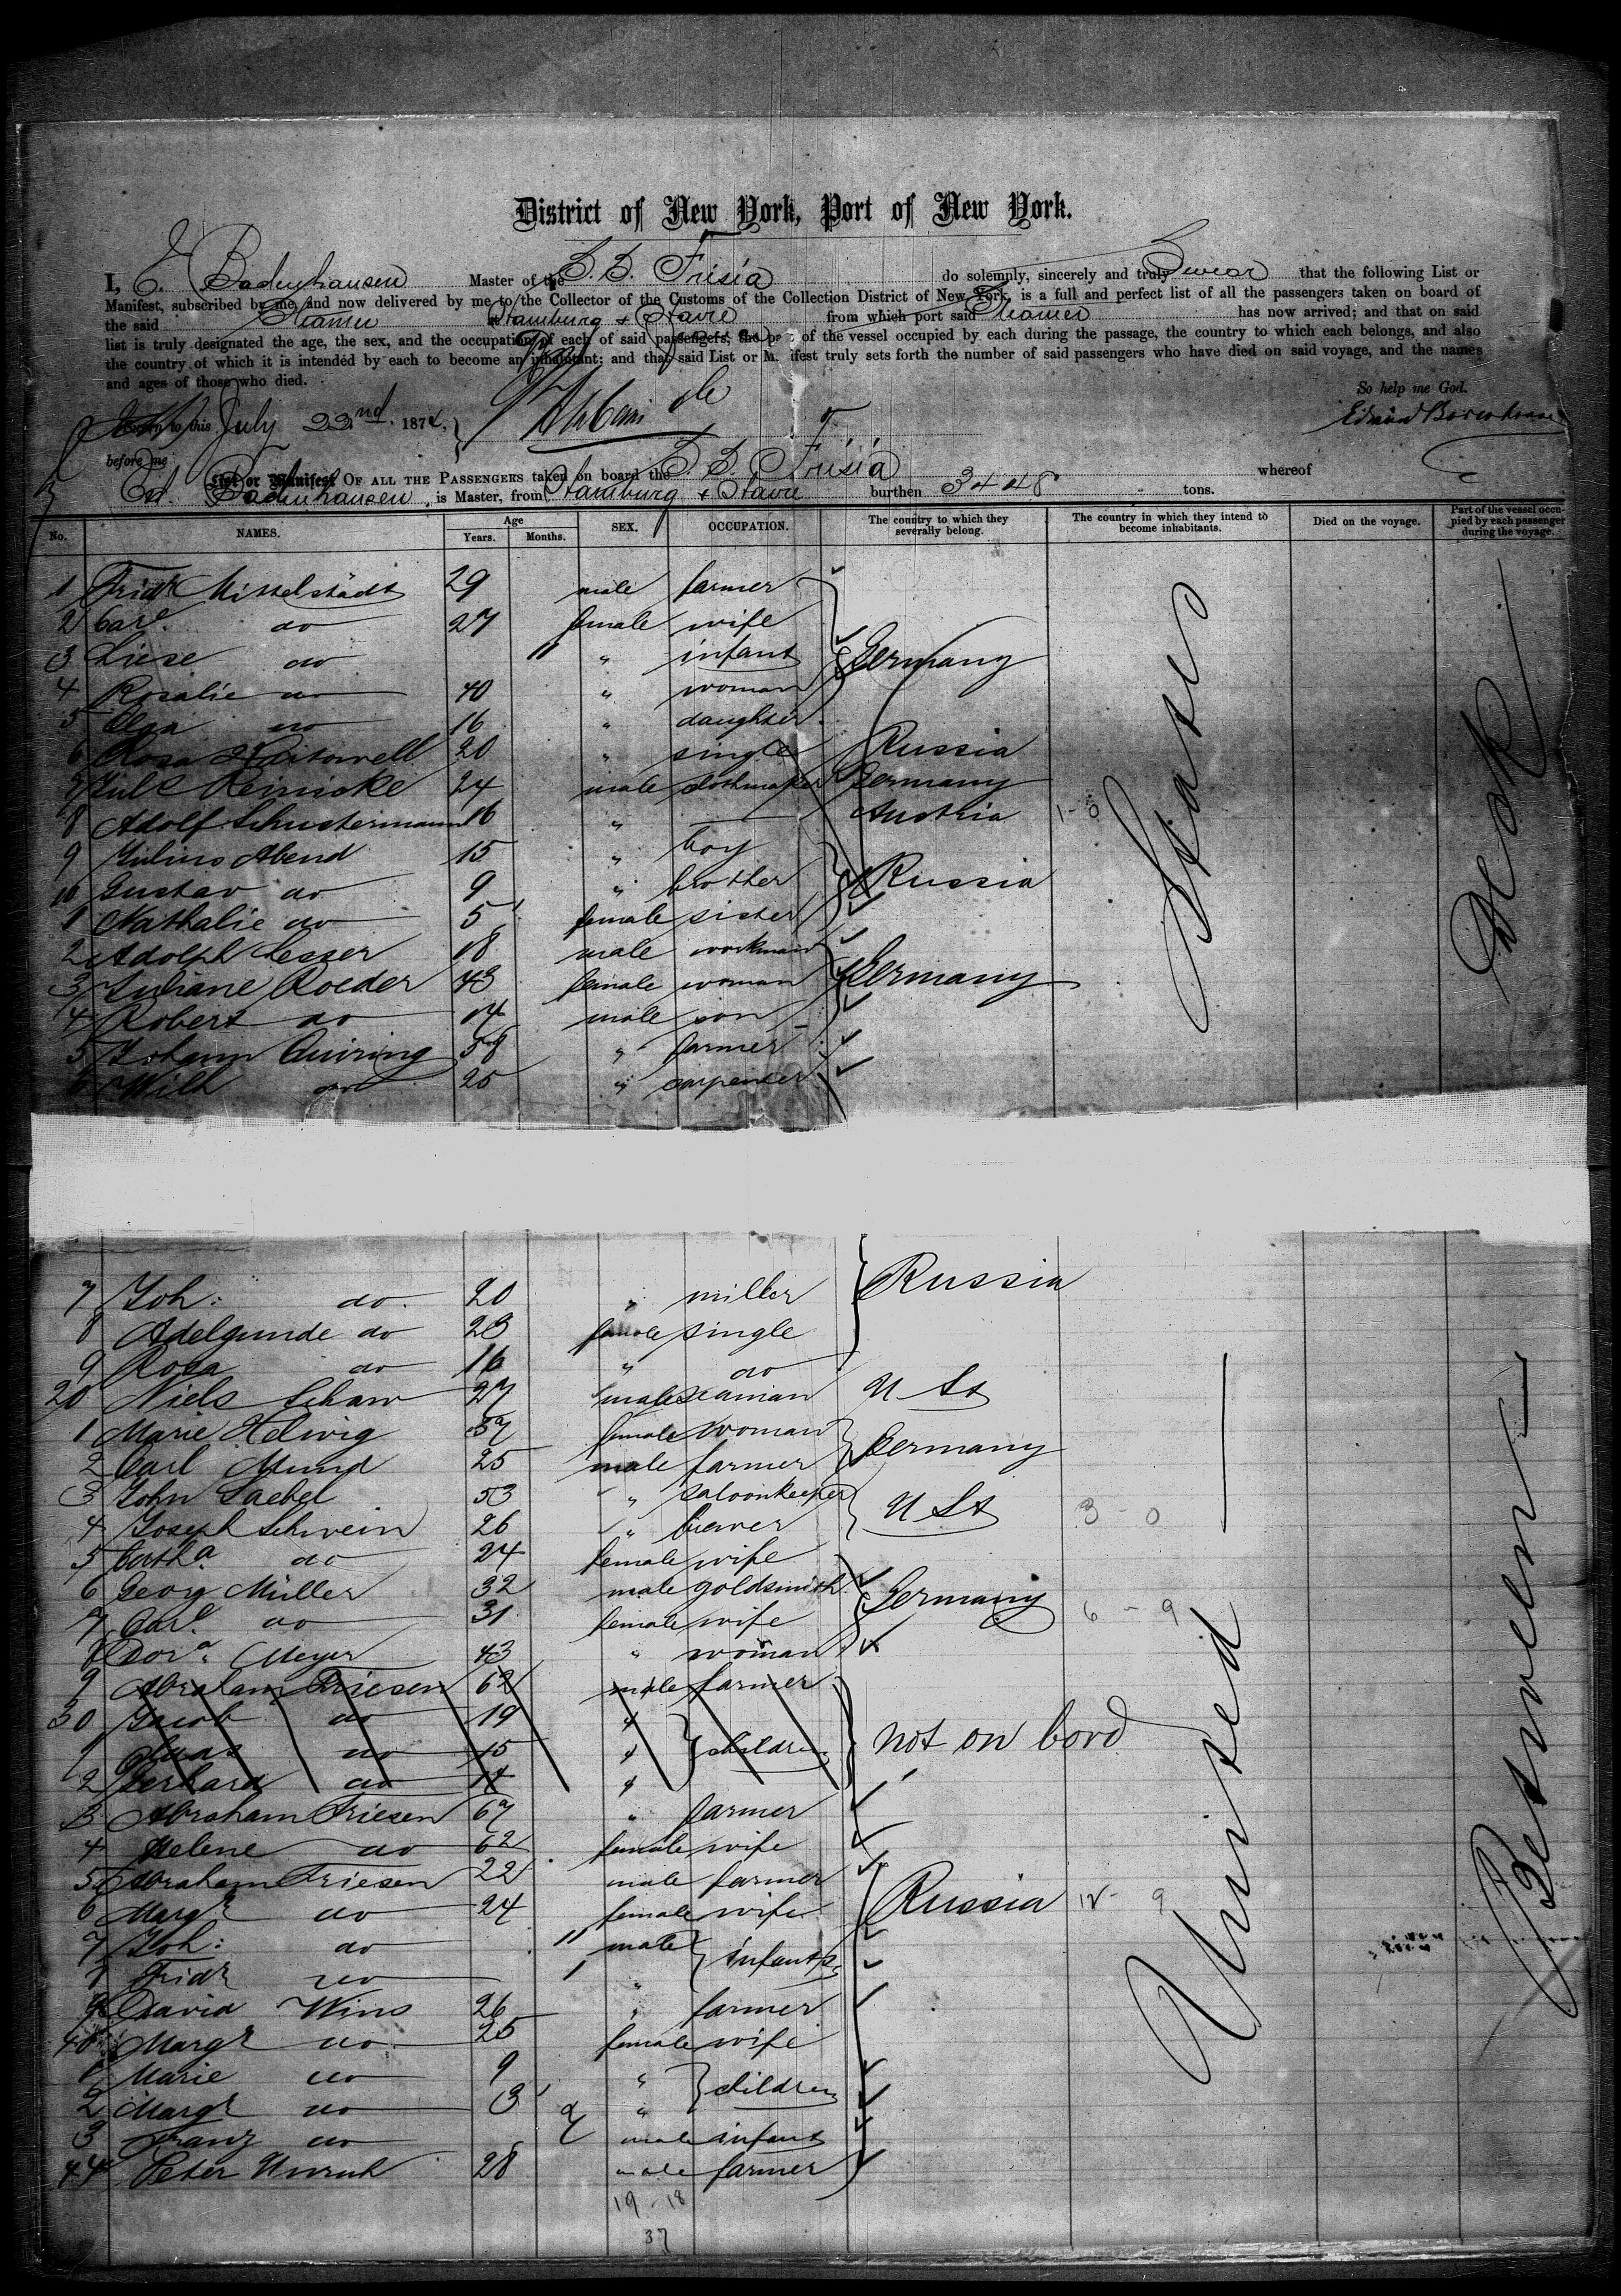 District of New York, Port of New York.
I, E. Badenhausen Master of the S. S. Frisia do solemnly, sincerely and truly Swear that the following List or
Manifest, subscribed by me, and now delivered by me to the Collector of the Customs of the Collection District of New York, is a full and perfect list of all the passengers taken on board of
the said Steamer Hamburg & Havre from which port said Steamer has now arrived; and that on said
list is truly designated the age, the sex, and the occupation of each of said passengers, the part of the vessel occupied by each during the passage, the country to which each belongs, and also
the country of which it is intended by each to become an inhabitant; and that said List or Manifest truly sets forth the number of said passengers who have died on said voyage, and the names
and ages of those who died.
So help me God.
Sworn to this July 22nd 1874,
before me
List or Manifest OF ALL THE PASSENGERS taken on board the S. S. Frisia whereof
Ed. Badenhausen is Master, from Hamburg & Havre burthen 3448 tons.
No. NAMES. Age Years. Months. SEX. OCCUPATION. The country to which they severally belong. The country in which they intend to become inhabitants. Died on the voyage. Part of the vessel occupied by each passenger during the voyage.
1 Fridr Mittelstädt 29 male farmer
2 Carl. do 27 female wife
3 Liese do 11 " infant Germany
4 Rosalie do 40 " woman
5 Olga do 16 " daughter
6 Rosa 20 " single Russia
7 Jul Reinicke 24 male clothmaker Germany
8 Adolf Schustermann 16 " Austria 1-0
9 Julius Abend 15 " boy
10 Gustav do 9 " brother Russia
1 Nathalie do 5 female sister
2 Adolph Lesser 18 male workman
3 Juliane Roeder 43 female woman Germany
4 Robert do 14 male son
5 Johann Quiring 58 " farmer
6 Wilh do 25 " carpenter
7 Joh: do 20 " miller Russia
8 Adelgunde do 23 female single
9 Rosa do 16 " do
20 Niels Schaw 27 male seaman U St
1 Marie Helwig 57 female woman
2 Carl Mund 25 male farmer Germany
3 John Saebel 53 " saloonkeeper
4 Joseph Schwein 26 " brewer U St 3-0
5 Cath.a do 24 female wife
6 Georg Müller 32 male goldsmith Germany
7 Carl. do 31 female wife 6-9
8 Dor.a Meyer 43 " woman
9 Abraham Friesen 62 male farmer
30 Jacob do 19 "
1 Claas do 15 " children not on bord
2 Gerhard do 14 "
3 Abraham Friesen 67 " farmer
4 Helene do 62 female wife
5 Abraham Friesen 22 male farmer
6 Margr do 24 female wife Russia 12-9
7 Joh: do 11 male
8 Fridr do 1 " infants
9 David Wins 26 " farmer
40 Margr do 25 female wife
1 Marie do 9 " children
2 Margr do 3 "
3 Franz do male infant
44 Peter Unruh 28 male farmer
19-18
37
United States
Between Deck